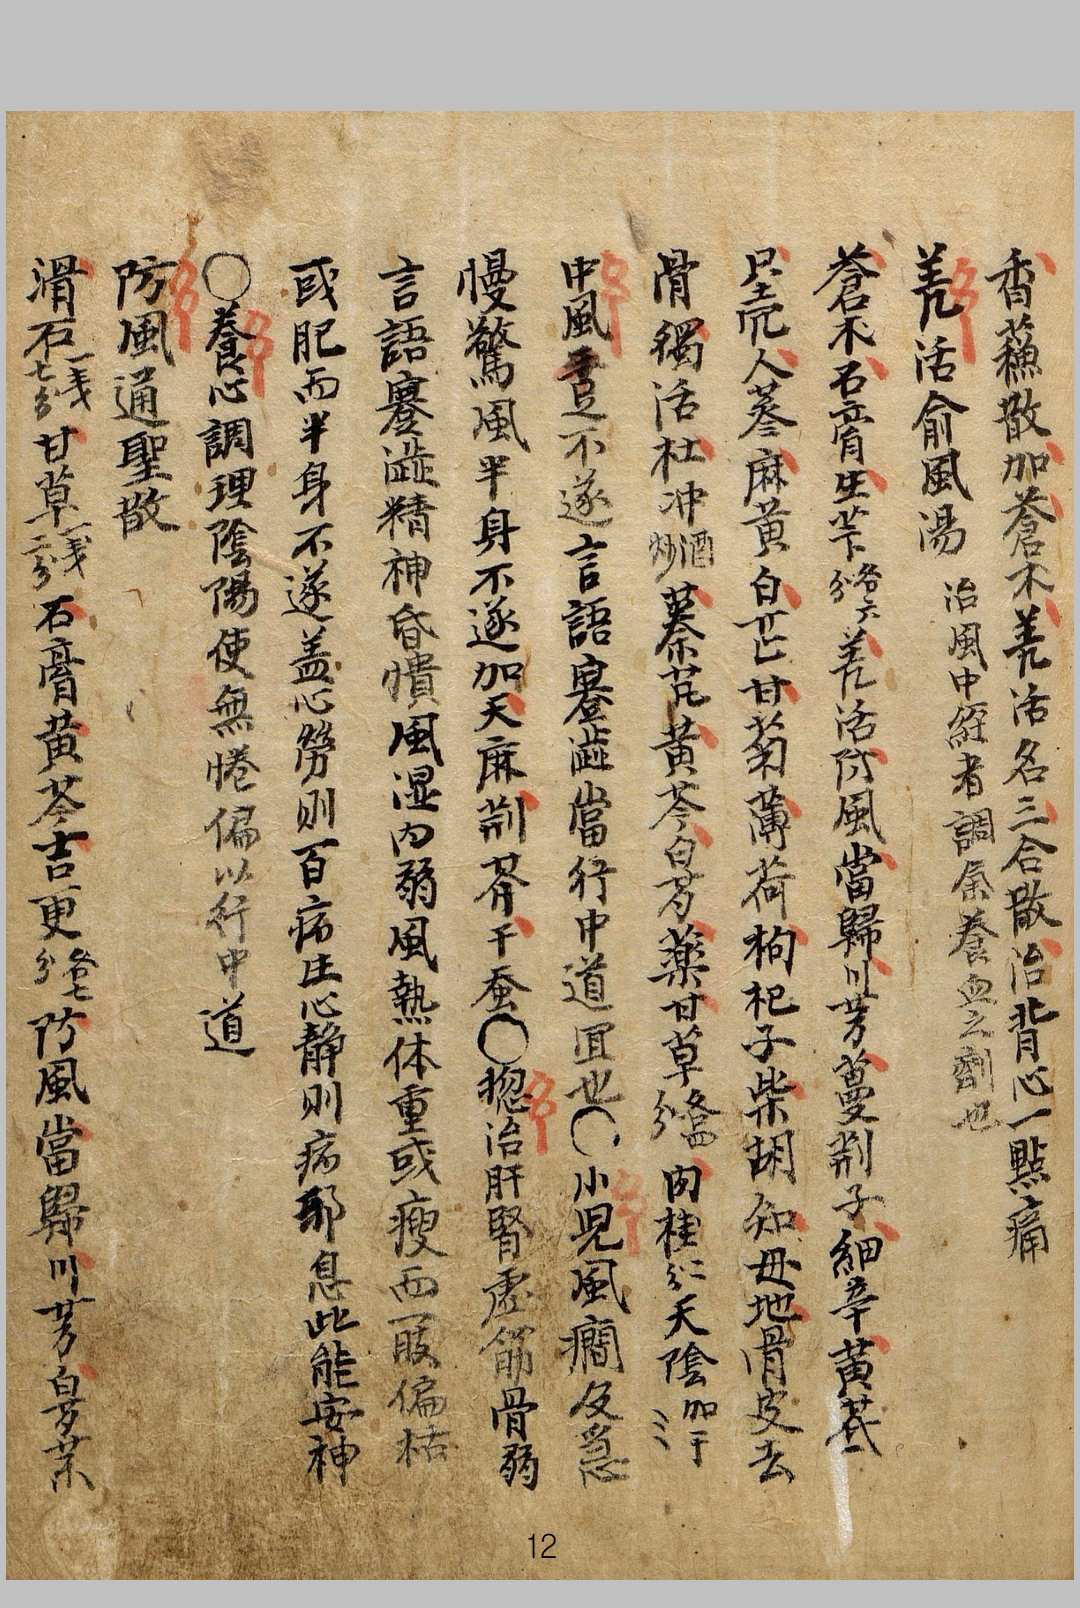 香蘓散加蒼朮羌活名三合散治背心一點痛
羌活俞風湯 治風中經者調氣養血之劑也
蒼朮石膏生苄各六分羌活防風當歸川芎蔓荆子細辛黃芪
只壳人蔘麻黄白芷甘菊薄荷枸杞子柴胡知母地骨皮去
骨獨活杜冲酒炒蓁芃黄芩白芍藥甘草各四分肉桂二分天陰加干
中風 不遂言語蹇澁當行中道宜也〇小児風癎及急
慢驚風半身不遂加天麻荆芥干蚕〇揔治肝腎虛筋骨弱
言語蹇澁精神昏憒風湿内弱風熱体重或瘦而一肢偏枯
或肥而半身不遂盖心勞則百病生心静則病邪息此能安神
〇養心調理陰陽使無惓偏以行中道
防風通聖散
滑石一戔七分甘草一戔二分石膏黄芩吉更各七分防風當歸川芎白芍